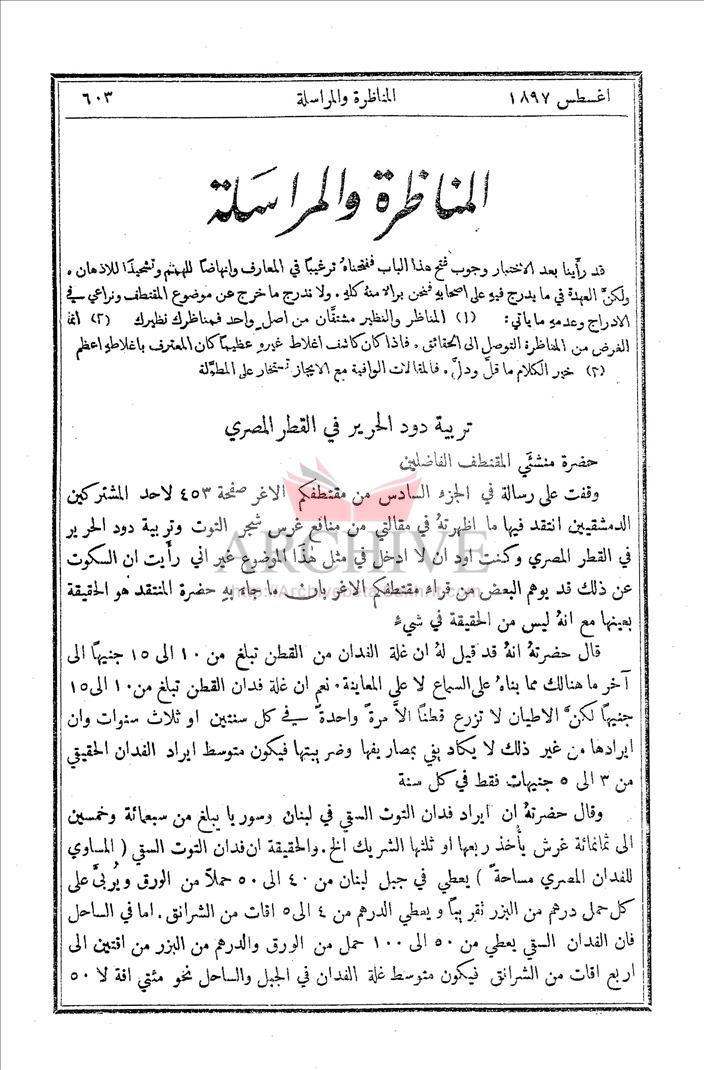 اغسطس ١٨٩٧ المناظرة والمراسلة ٦٠٣
المناظرة والمراسلة
قد رأينا بعد الاختبار وجوب فتح هذا الباب ففتحناهُ ترغيبًا في المعارف وانهاضًا للهمم وتشحيذًا للاذهان ٠
ولكنَّ العهدة في ما يدرج فيهِ على اصحابهِ فنحن برالا منهُ كلهِ ٠ ولا ندرج ما خرج عن موضوع المقتطف ونراعي في
الادراج وعدمهِ ما يأتي: (١) المناظر والنظير مشتقَّان من اصل واحد فمناظرك نظيرك (٢) انما
الغرض من المناظرة التوصل الى الحقائق ٠ فاذا كان كاشف اغلاط غيرهِ عظيمًا كان المعترف باغلاطهِ اعظم
(٣) خير الكلام ما قلَّ ودلَّ ٠ فالمقالات الوافية مع الايجاز تستخار على المطوَّلة
تربية دود الحرير في القطر المصري
حضرة منشئَي المقتطف الفاضلين
وقفت على رسالة في الجزء السادس من مقتطفكم الاغر صفحة ٤٥٣ لاحد المشتركين
الدمشقيين انتقد فيها ما اظهرتهُ في مقالتي من منافع غرس شجر التوت وتربية دود الحرير
في القطر المصري وكنت اود ان لا ادخل في مثل هٰذا الموضوع غير اني رأَيت ان السكوت
عن ذلك قد يوهم البعض من قراء مقتطفكم الاغر بان ما جاء بهِ حضرة المنتقد هو الحقيقة
بعينها مع انهُ ليس من الحقيقة في شيءٍ
قال حضرتهُ انهُ قد قيل لهُ ان غلة الفدان من القطن تبلغ من ١٠ الى ١٥ جنيهًا الى
آخر ما هنالك مما بناهُ على السماع لا على المعاينة ٠ نعم ان غلة فدان القطن تبلغ من ١٠ الى ١٥
جنيهًا لكنَّ الاطيان لا تزرع قطنًا الاَّ مرةً واحدةً في كل سنتين او ثلاث سنوات وان
ايرادها من غير ذلك لا يكاد يفي بمصاريفها وضريبتها فيكون متوسط ايراد الفدان الحقيقي
من ٣ الى ٥ جنيهات فقط في كل سنة
وقال حضرتهُ ان ايراد فدان التوت السقي في لبنان وسوريا يبلغ من سبعمائة وخمسين
الى ثمانمائة غرش يأْخذ ربعها او ثلثها الشريك الخ ٠ والحقيقة ان فدان التوت السقي ( المساوي
للفدان المصري مساحةً ) يعطي في جبل لبنان من ٤٠ الى ٥٠ حملاً من الورق ويُربَّى على
كل حمل درهم من البزر نقريبًا ويعطي الدرهم من ٤ الى ٥ اقات من الشرانق ٠ اما في الساحل
فان الفدان السقي يعطي من ٥٠ الى ١٠٠ حمل من الورق والدرهم من البزر من اقتين الى
اربع اقات من الشرانق فيكون متوسط غلة الفدان في الجبل والساحل نحو مئتي اقة لا ٥٠
ARCHIVE